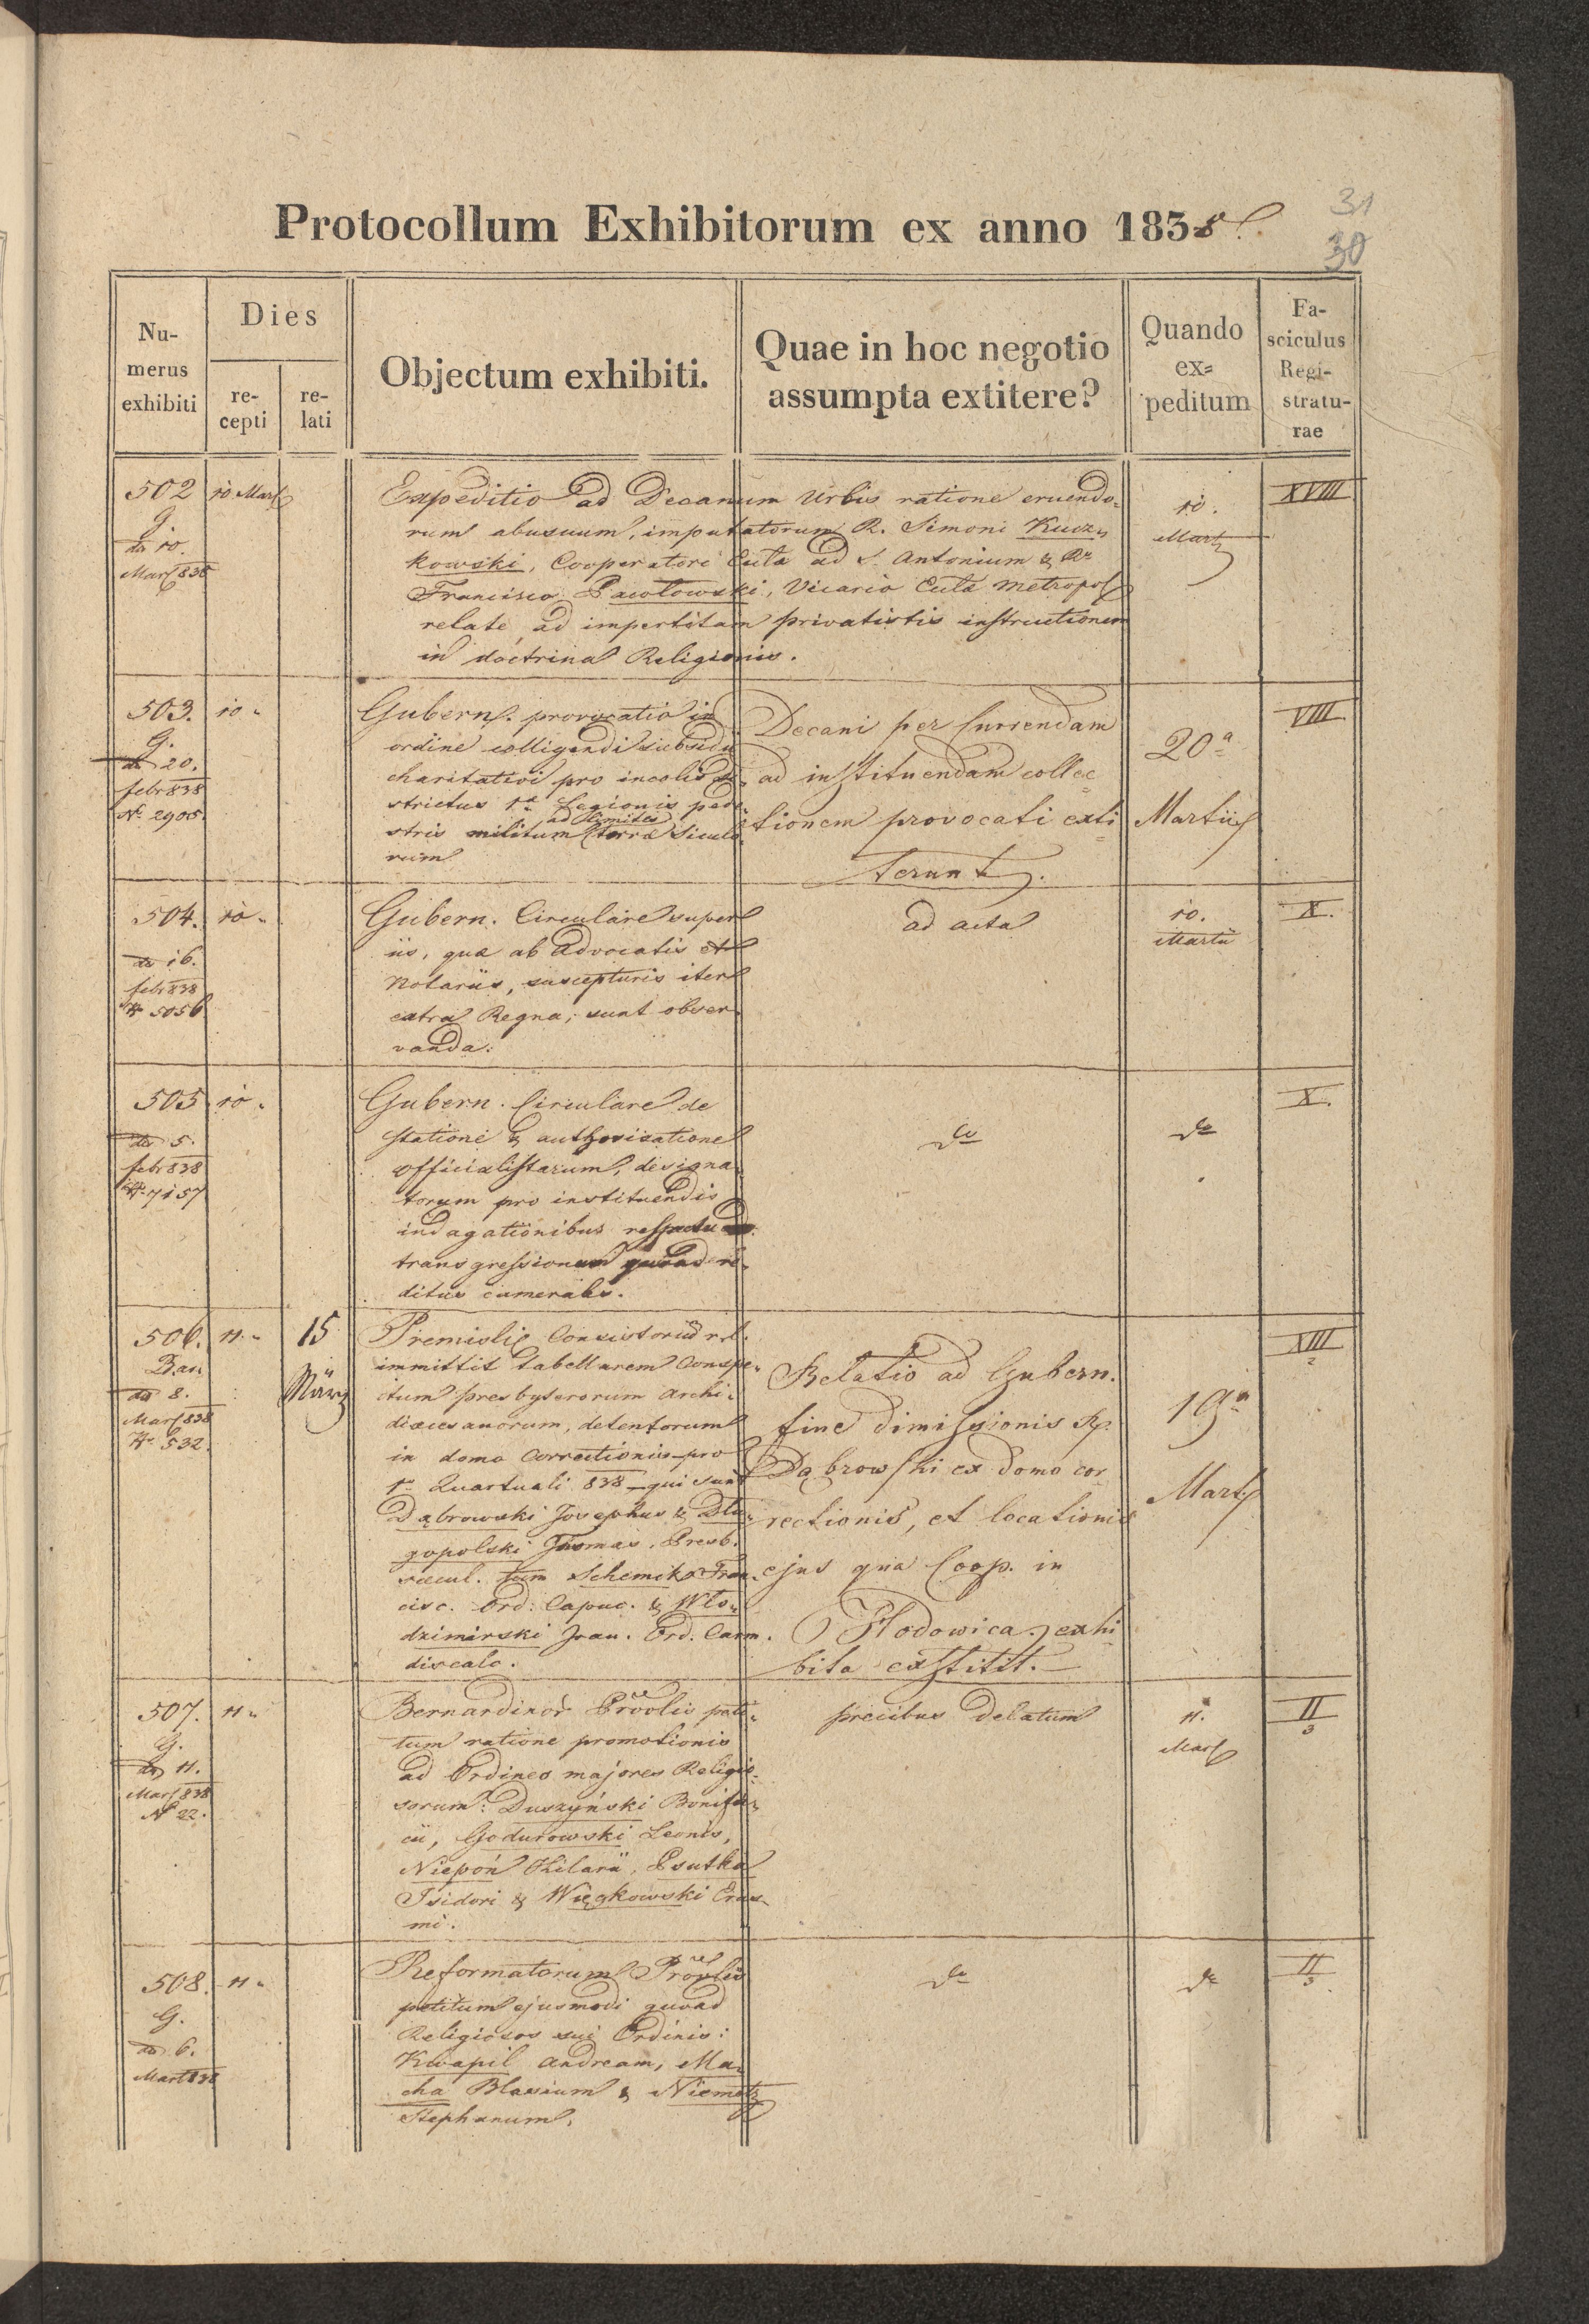 31
30
Protocollum Exhibitorum ex anno 1838.
Nu-
merus
exhibiti
Dies
re-
cepti
re-
lati
Objectum exhibiti.
Quae in hoc negotio
assumpta extitere?
Quando
ex=
peditum
Fa-
sciculus
Regi-
stratu-
rae
502
G.
do 10.
Mart 838
10 Mart
Expeditio ad Decanum Urbis ratione eruendo-
rum abusuum, imputatorum R. Simoni Kucz-
kowski, Cooperatori Ecclae ad S. Antonium & Ro
Francisco Pawlowski, Vicario Ecclae Metropol
relate ad impertitam privatistis instructionem
in doctrina Religionis.
10.
Mart
XVIII
503.
G.
do 20.
febr 838
No 2905.
10 "
Gubern. provocatio in
ordine colligendi subsidii
charitativi pro incolis di-
strictus 1ae Legionis pede-
ad limites
stris militum terrae Siculo-
rum
Decani per Currendam
ad instituendam collec
tionem provocati exti
terunt.
20a
Martii
VIII
504.
do 16.
febr 838
No 5056
10 "
Gubern. Circulare super
iis, quae ab Advocatis et
Notariis, suscepturis iter
extra Regna, sunt obser-
vanda.
ad acta
10.
Martii
X.
505
do 5.
febr 838
No 7157
10 "
Gubern. Circulare de
statione & authorisatione
officialistarum, designa-
torum pro instituendis
indagationibus respectu
transgressionum quoad re-
ditus camerales.
do
do
X.
506.
do 8.
Mart 838
No 532.
11. "
15
März
Premislie Consistorium rel.
immittit tabellarem Conspe-
ctum presbyterorum Archi-
dioecesanorum, detentorum
in domo Correctionis pro
1o Quartuali 838 - qui sunt
Dąbrowski Josephus & Dłu-
gopolski Thomas, Presb.
saecul. tum Schemik Fran-
cisc. Ord: Capuc. & Wło-
dzimirski Joan. Ord. Carm.
discalc.
Relatio ad Gubern.
fine dimissionis Rp.
Dąbrowski ex domo cor
rectionis, et locationis
ejus qua Coop. in
Hodowica exhi
bita exstitit.
19a
Mart
XIII
2
507.
G.
do 11.
Mart 838
No 22.
11 "
Bernardinor Provlis peti-
tum ratione promotionis
ad Ordines majores Religio-
sorum: Duszyński Bonifa-
cii, Godurowski Leonis,
Niepoń Hilarii, Psutka
Isidori & Więckowski Eras-
mi.
precibus delatum
11.
Mart
II
3
508.
G.
do 6.
Mart 838
11 "
Reformatorum Provlis
petitum ejusmodi quoad
Religiosos sui Ordinis:
Kwapil Andream, Ma-
cha Blasium & Niemetz
Stephanum.
do
do
II
3